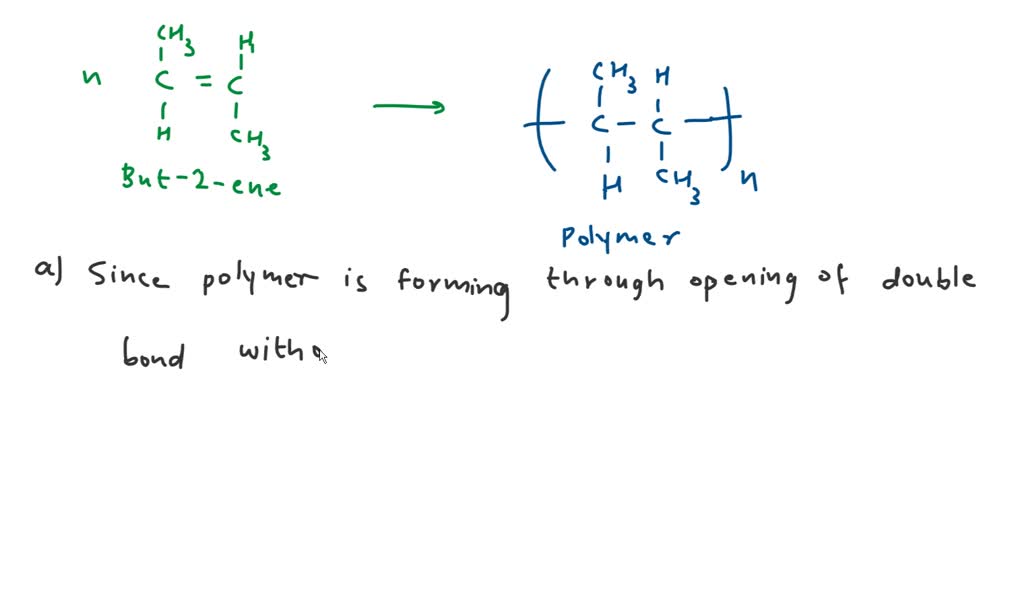 CH3 H
n C = C
H CH3
But-2-ene
CH3 H
C - C
H CH3 n
Polymer
a) Since polymer is forming through opening of double
bond with